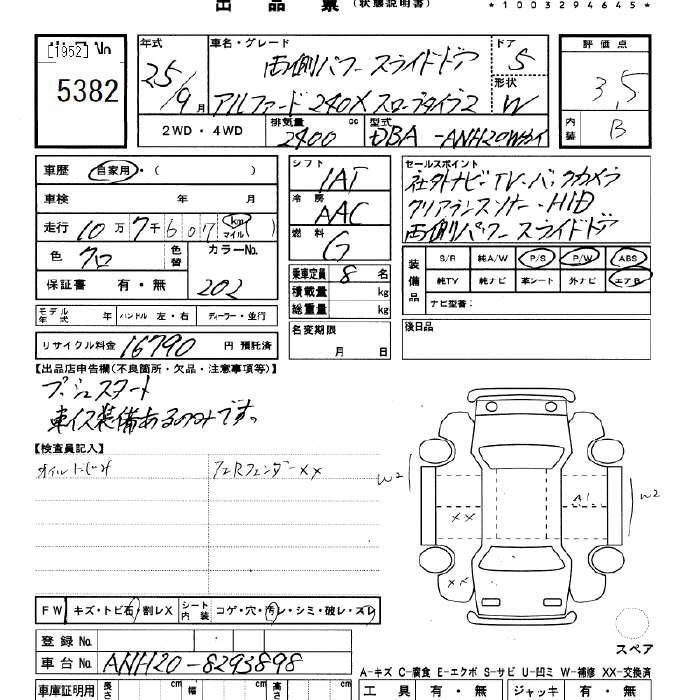 出品票(状態説明書)
*1003294645*
[1952] No
5382
年式 車名・グレード ドア 評価点
25/9月 両側パワースライドドア 5 3,5
アルファード 240X スロープタイプ2 形状 W 内装 B
2WD・4WD 排気量 cc 型式
2400 DBA-ANH20W
車歴 自家用・( )
車検 年 月
走行 10万7千607 km マイル ( )
色 クロ 色替 カラーNo.
202
保証書 有・無
モデル年式 年 ハンドル 左・右 ディーラー・並行
リサイクル料金 16790 円 預託済
シフト IAT
冷房 AAC
燃料 G
乗車定員 8 名
積載量 kg
総重量 kg
名変期限
月 日
セールスポイント
社外ナビ・TV・バックカメラ
クリアランスソナー・HID
両側パワースライドドア
装備品 S/R 純A/W P/S P/W ABS
純TV 純ナビ 革シート 外ナビ エアB
ナビ型番:
後日品
【出品店申告欄(不良箇所・欠品・注意事項等)】
プッシュスタート
車イス装備あるのみです。
【検査員記入】
オイルにじみ
フェRフェンダーXX
W2
A1
W2
XX
XX
FW キズ・トビ石・割レX シート内装 コゲ・穴・汚レ・シミ・破レ・スレ
登録No.
車台No. ANH20-8293898
スペア
A-キズ C-腐食 E-エクボ S-サビ U-凹ミ W-補修 XX-交換済
車庫証明用 長さ cm 幅 cm 高さ cm
工具 有・無 ジャッキ 有・無